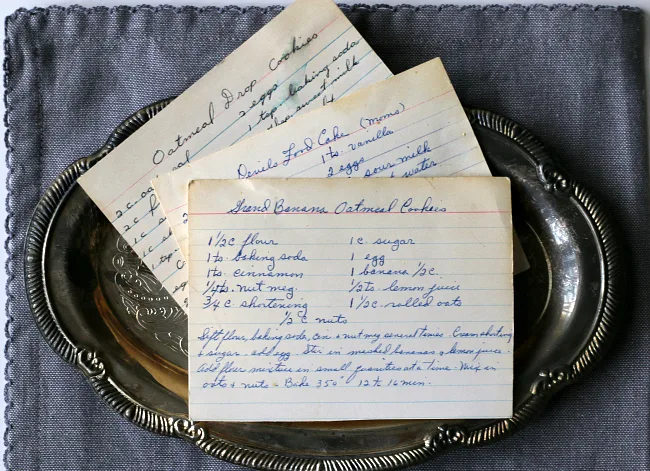 Oatmeal Drop Cookies
2 eggs
1 tsp. baking soda
sweet milk
2 c. oa
Devils Food Cake (Moms)
1 ts. vanilla
2 eggs
sour milk
water
Grand Banana Oatmeal Cookies
1 1/2 c flour 1 c. sugar
1 ts. baking soda 1 egg
1 ts. cinnamon 1 banana 1/2 c.
1/4 ts. nut meg. 1/2 ts. lemon juice
3/4 c shortening 1 1/2 c. rolled oats
1/2 c nuts
Sift flour, baking soda, cin & nutmeg several times. Cream shortning
& sugar. add egg. Stir in mashed bananas & lemon juice.
Add flour mixture in small quanities at a time. Mix in
oats & nuts - Bake 350° 12 to 16 min.